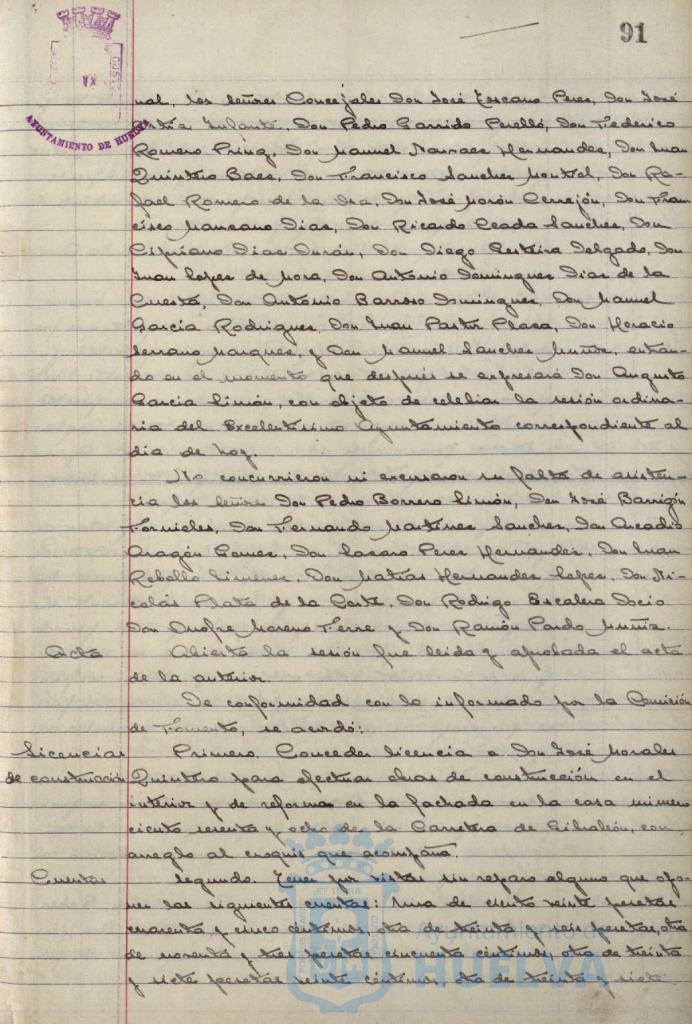 91
AYUNTAMIENTO DE HUELVA
nal, los Señores Concejales Don José Toscano Perez, Don José
Ortiz Infante, Don Pedro Garrido Perelló, Don Federico
Romero Prinz, Don Manuel Narvaez Hernandez, Don Juan
Quintero Baez, Don Francisco Sanchez Montiel, Don Ra-
fael Romero de la Isa, Don José Morón Cerrejón, Don Fran-
cisco Manzano Diaz, Don Ricardo Ceada Sanchez, Don
Cipriano Diaz Durán, Don Diego Delgado, Don
Juan Lopez de Mora, Don Antonio Dominguez Diaz de la
Cuesta, Don Antonio Barroso Dominguez, Don Manuel
García Rodriguez, Don Juan Pastor Plaza, Don Horacio
Serrano Marquez, y Don Manuel Sanchez Muñiz, entran-
do en el momento que después se expresará Don Augusto
García Simón, con objeto de celebrar la sesión ordina-
ria del Excelentísimo Ayuntamiento correspondiente al
dia de hoy.
No concurrieron ni excusaron su falta de asisten-
cia los Señores Don Pedro Borrero Limón, Don José Barrigón
Fornieles, Don Fernando Martinez Sanchez, Don Arcadio
Aragón Gomez, Don Lazaro Perez Hernandez, Don Juan
Rebollo Jimenez, Don Matías Hernandez Lopez, Don Ni-
colás Plata de la Corte, Don Rodrigo Escalera Docio
Don Onofre Moreno Ferre y Don Ramón Pardo Muñiz.
Acta Abierta la sesión fue leida y aprobada el acta
de la anterior.
De conformidad con lo informado por la Comisión
de Fomento, se acordó:
Licencias Primero. Conceder licencia a Don José Morales
de construcción Quintero para efectuar obras de construcción en el
interior y de reforma en la fachada en la casa número
ciento setenta y ocho de la Carretera de Gibraleón, con
arreglo al croquis que acompaña.
Cuentas Segundo. Tener por vistas sin reparo alguno que opo-
ner las siguientes cuentas: Una de ciento veinte pesetas
cuarenta y cinco céntimos, otra de treinta y seis pesetas, otra
de noventa y tres pesetas cincuenta céntimos, otra de treinta
y siete pesetas veinte céntimos, otra de treinta y siete
Ayuntamiento de
HUELVA